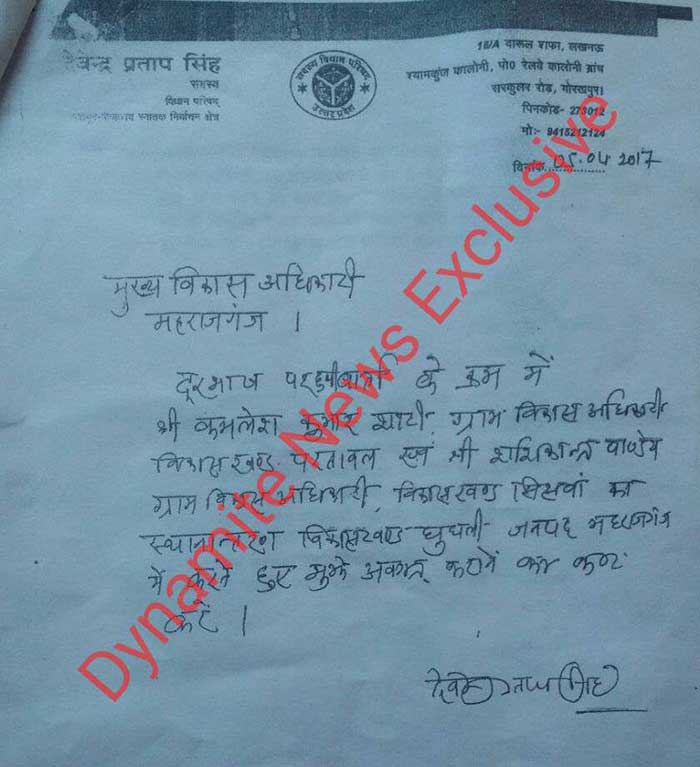 देवेन्द्र प्रताप सिंह
सदस्य
विधान परिषद्
स्नातक निर्वाचन क्षेत्र
सदस्य विधान परिषद्
उत्तर प्रदेश
18/A दारूल शफा, लखनऊ
श्यामकुंज कालोनी, पो0 रेलवे कालोनी ब्रांच
सरकुलर रोड, गोरखपुर।
पिनकोड- 273012
मो:- 9415212124
दिनांक 05.04 2017
मुख्य विकास अधिकारी
महराजगंज ।
दूरभाष पर हुयी वार्ता के क्रम में
श्री कमलेश कुमार शाही, ग्राम विकास अधिकारी
विकास खण्ड परतावल एवं श्री शशिकान्त पाण्डेय
ग्राम विकास अधिकारी, विकासखण्ड सिसवां का
स्थानान्तरण विकासखण्ड घुघली जनपद महराजगंज
में करते हुए मुझे अवगत कराने का कष्ट
करें ।
देवेन्द्र प्रताप सिंह
Dynamite News Exclusive